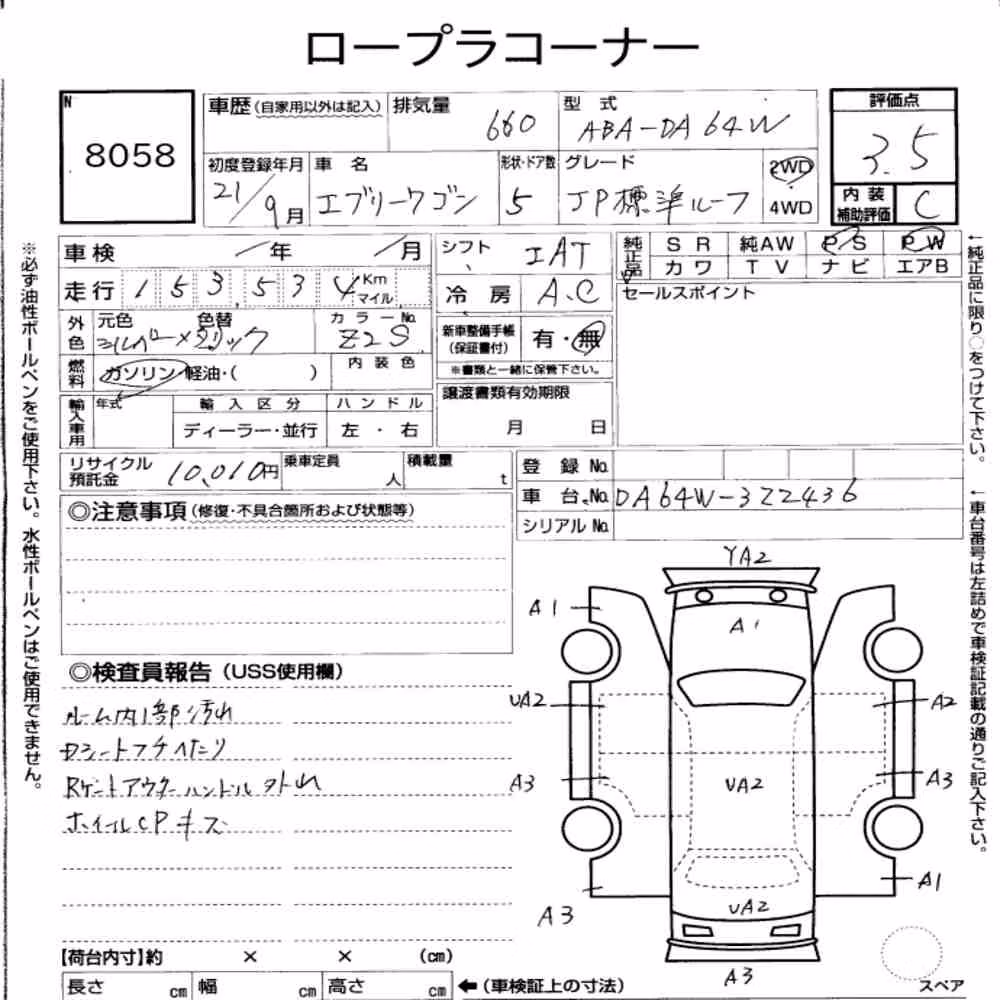 ロープラコーナー
N
8058
車歴(自家用以外は記入)
排気量
660
型 式
ABA-DA64W
評価点
3.5
初度登録年月
21/9月
車 名
エブリーワゴン
形状・ドア数
5
グレード
JP標準ルーフ
2WD
4WD
内 装
補助評価
C
車検 / 年 / 月
シフト
IAT
純正品
SR 純AW PS PW
カワ TV ナビ エアB
走行 153,534 Km
マイル
冷 房
A.C
セールスポイント
外色
元色
色替
カラーNo.
シルバーメタリック
Z2S
新車整備手帳
(保証書付)
有・無
※書類と一緒に保管下さい。
燃料
ガソリン・軽油・( )
内 装 色
譲渡書類有効期限
月 日
輸入車用
年式
輸 入 区 分
ハ ン ド ル
ディーラー・並行
左 ・ 右
リサイクル
預託金
10,010円
乗車定員
人
積載量
t
登 録 No.
車 台 No. DA64W-322436
シリアル No.
◎注意事項(修復・不具合箇所および状態等)
◎検査員報告(USS使用欄)
ルーム内1部汚れ
Dシートフチへたり
Rゲートアウターハンドル外れ
ホイルCPキズ
YA2
A1
A1
UA2
A2
A3
UA2
A3
A1
UA2
A3
A3
スペア
【荷台内寸】約 × × (cm)
長さ cm 幅 cm 高さ cm ←(車検証上の寸法)
※必ず油性ボールペンをご使用下さい。水性ボールペンはご使用できません。
←純正品に限り○をつけて下さい。
←車台番号は左詰めで車検証記載の通りご記入下さい。